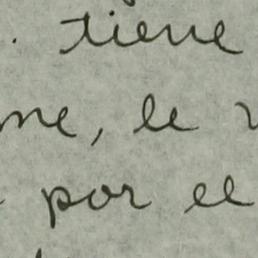 tiene
me, le
por el